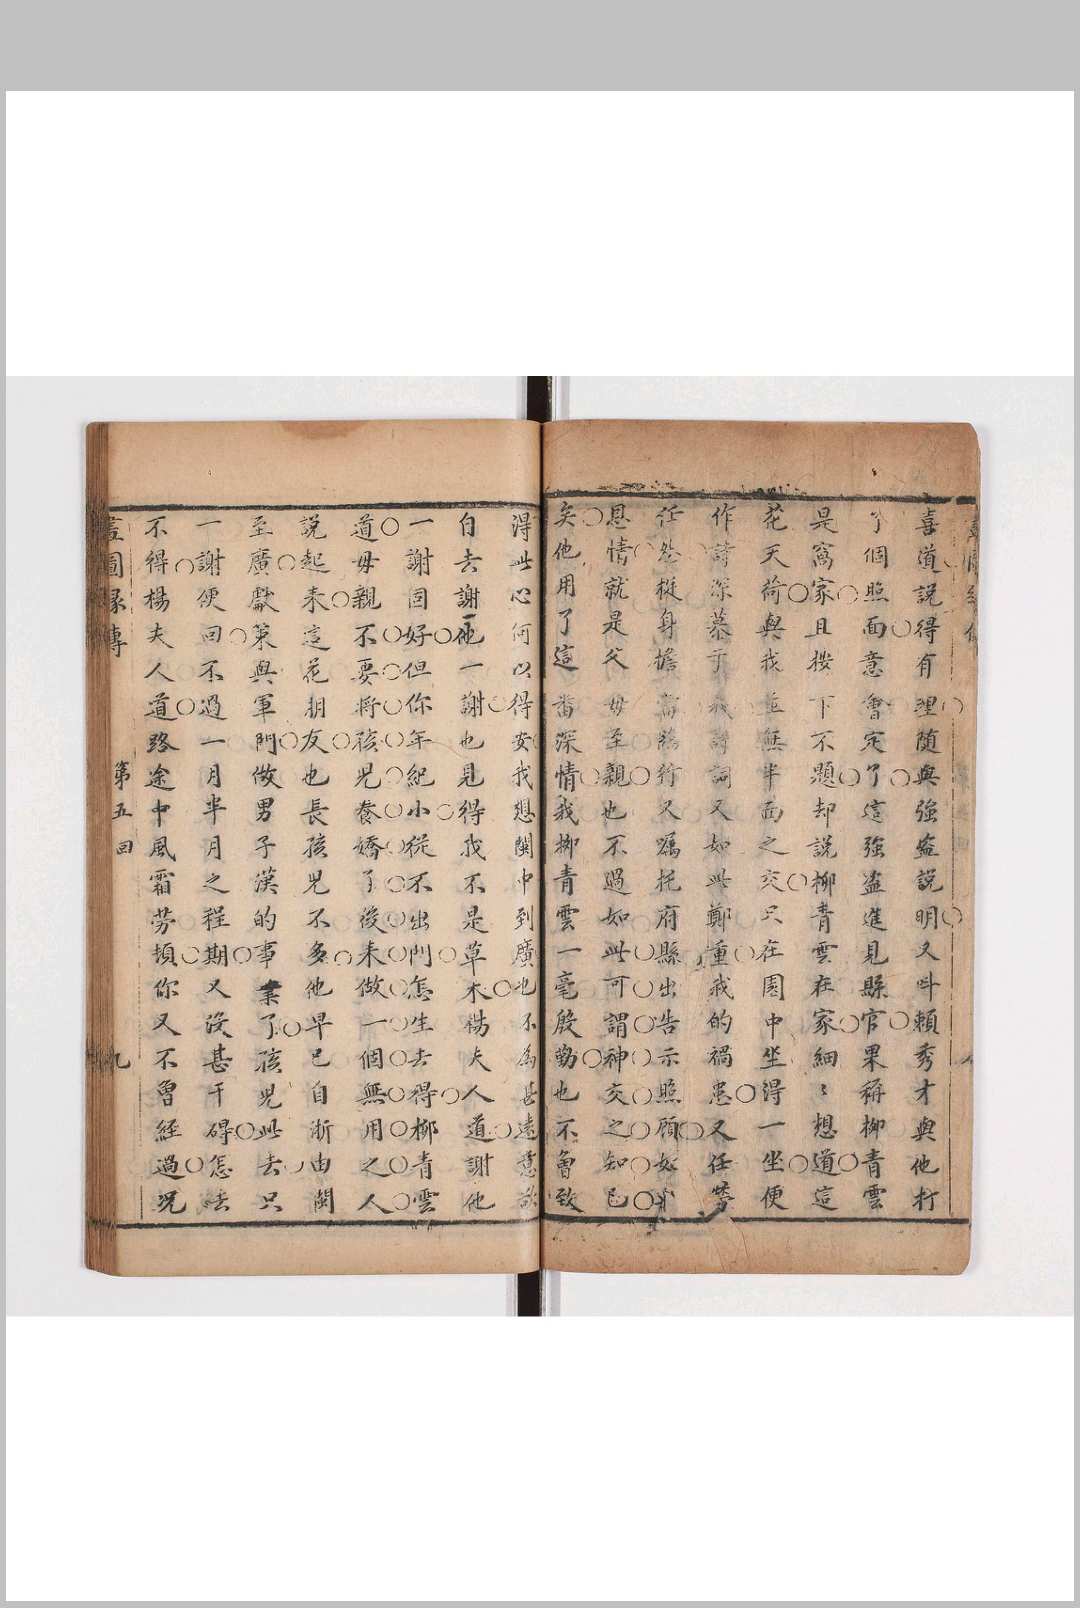 喜道說得有理随與強盗說明又呌賴秀才與他打
了個照面意會定了這強盗進見縣官果稱柳青雲
是窩家且按下不題却說柳青雲在家細〻想道這
花天荷與我並無半面之交只在園中坐得一坐便
作詩深慕于我詩詞又如此鄭重我的禍患又任勞
任怨挺身擔當強行又囑托府縣出告示照顧如此
恩情就是父母至親也不過如此可謂神交之知己
矣他用了這番深情我柳青雲一毫殷勤也不曾致
得此心何以得安我想閩中到廣也不為甚遠意欲
自去謝他一謝也見得我不是草木楊夫人道謝他
一謝固好但你年紀小從不出門怎生去得柳青雲
道毋親不要將孩児養嬌了後来做一個無用之人
說起来這花朋友也長孩児不多他早已自浙由閩
至廣獻策與軍門做男子漢的事業了孩児此去只
一謝便回不過一月半月之程期又没甚干碍怎去
不得楊夫人道路途中風霜劳頓你又不曾經過况
畫圖緣傳
第五回
九